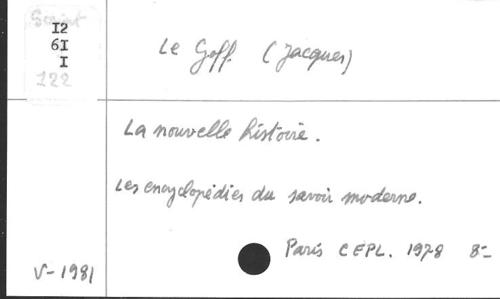 Script
I2
6I
I
122
Le Goff. (Jacques)
La nouvelle histoire.
Les encyclopédies du savoir moderne.
Paris CEPL. 1978 8-
V-1981